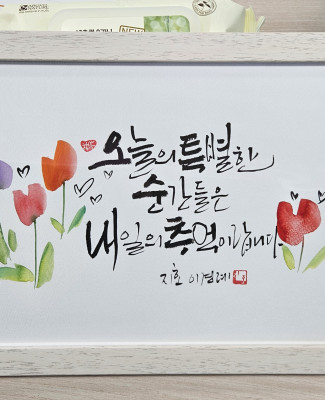 NEW
오늘의 특별한
순간들은
내일의 추억이랍니다
지효 이경례